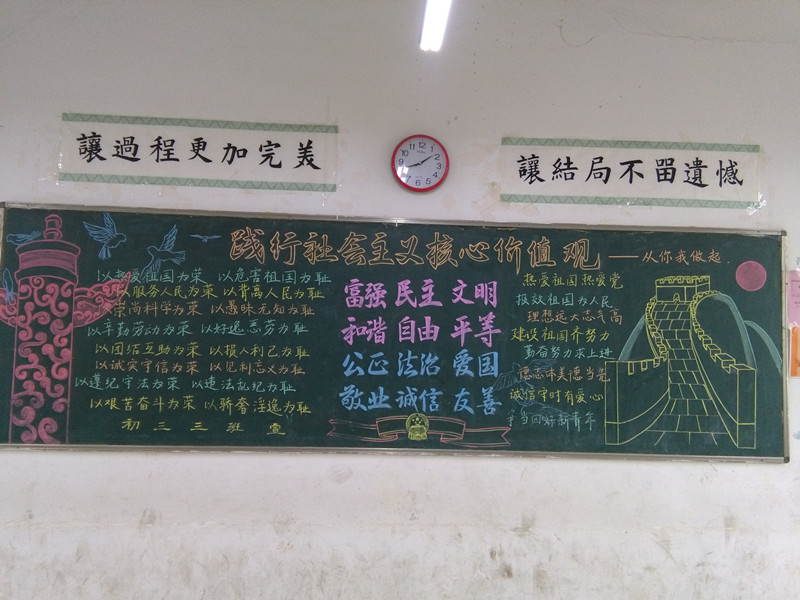 讓過程更加完美
讓結局不畱遺憾
践行社会主义核心价值观
——从你我做起
以热爱祖国为荣 以危害祖国为耻
以服务人民为荣 以背离人民为耻
以崇尚科学为荣 以愚昧无知为耻
以辛勤劳动为荣 以好逸恶劳为耻
以团结互助为荣 以损人利己为耻
以诚实守信为荣 以见利忘义为耻
以遵纪守法为荣 以违法乱纪为耻
以艰苦奋斗为荣 以骄奢淫逸为耻
初三三班宣
富强 民主 文明
和谐 自由 平等
公正 法治 爱国
敬业 诚信 友善
热爱祖国热爱党
报效祖国为人民
理想远大志气高
建设祖国齐努力
勤奋努力求上进
美德当先
诚信守时有爱心
争当四好新青年
12
1
2
3
4
5
6
7
8
9
10
11